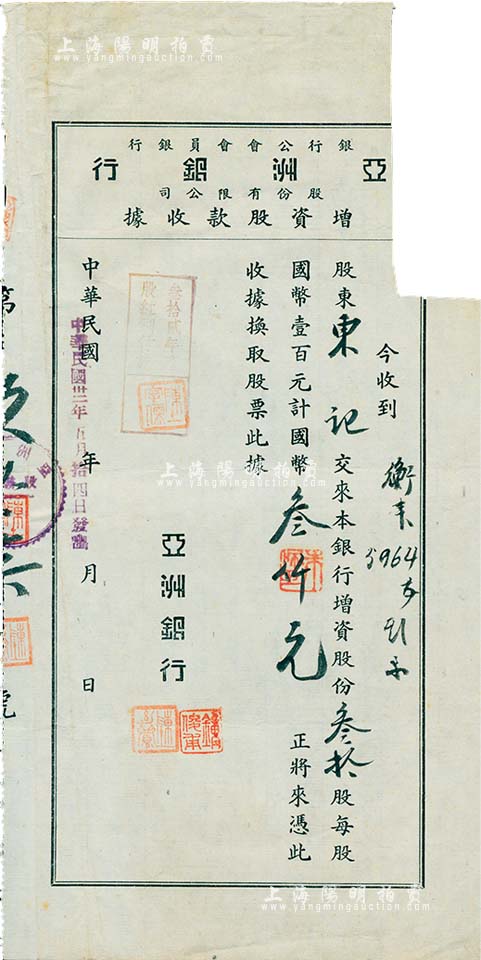 上海陽明拍賣
www.yangmingauction.com
銀行公會會員銀行
亞洲銀行
股份有限公司
增資股款收據
今收到
股東東記交來本銀行增資股份叁拾股每股
國幣壹百元計國幣叁仟元正將來憑此
收據換取股票此據
亞洲銀行
中華民國年月日
中華民國卅二年五月拾四日發出
叁拾貳年
964
號
上海陽明拍賣
www.yangmingauction.com
上海陽明拍賣
www.yangmingauction.com